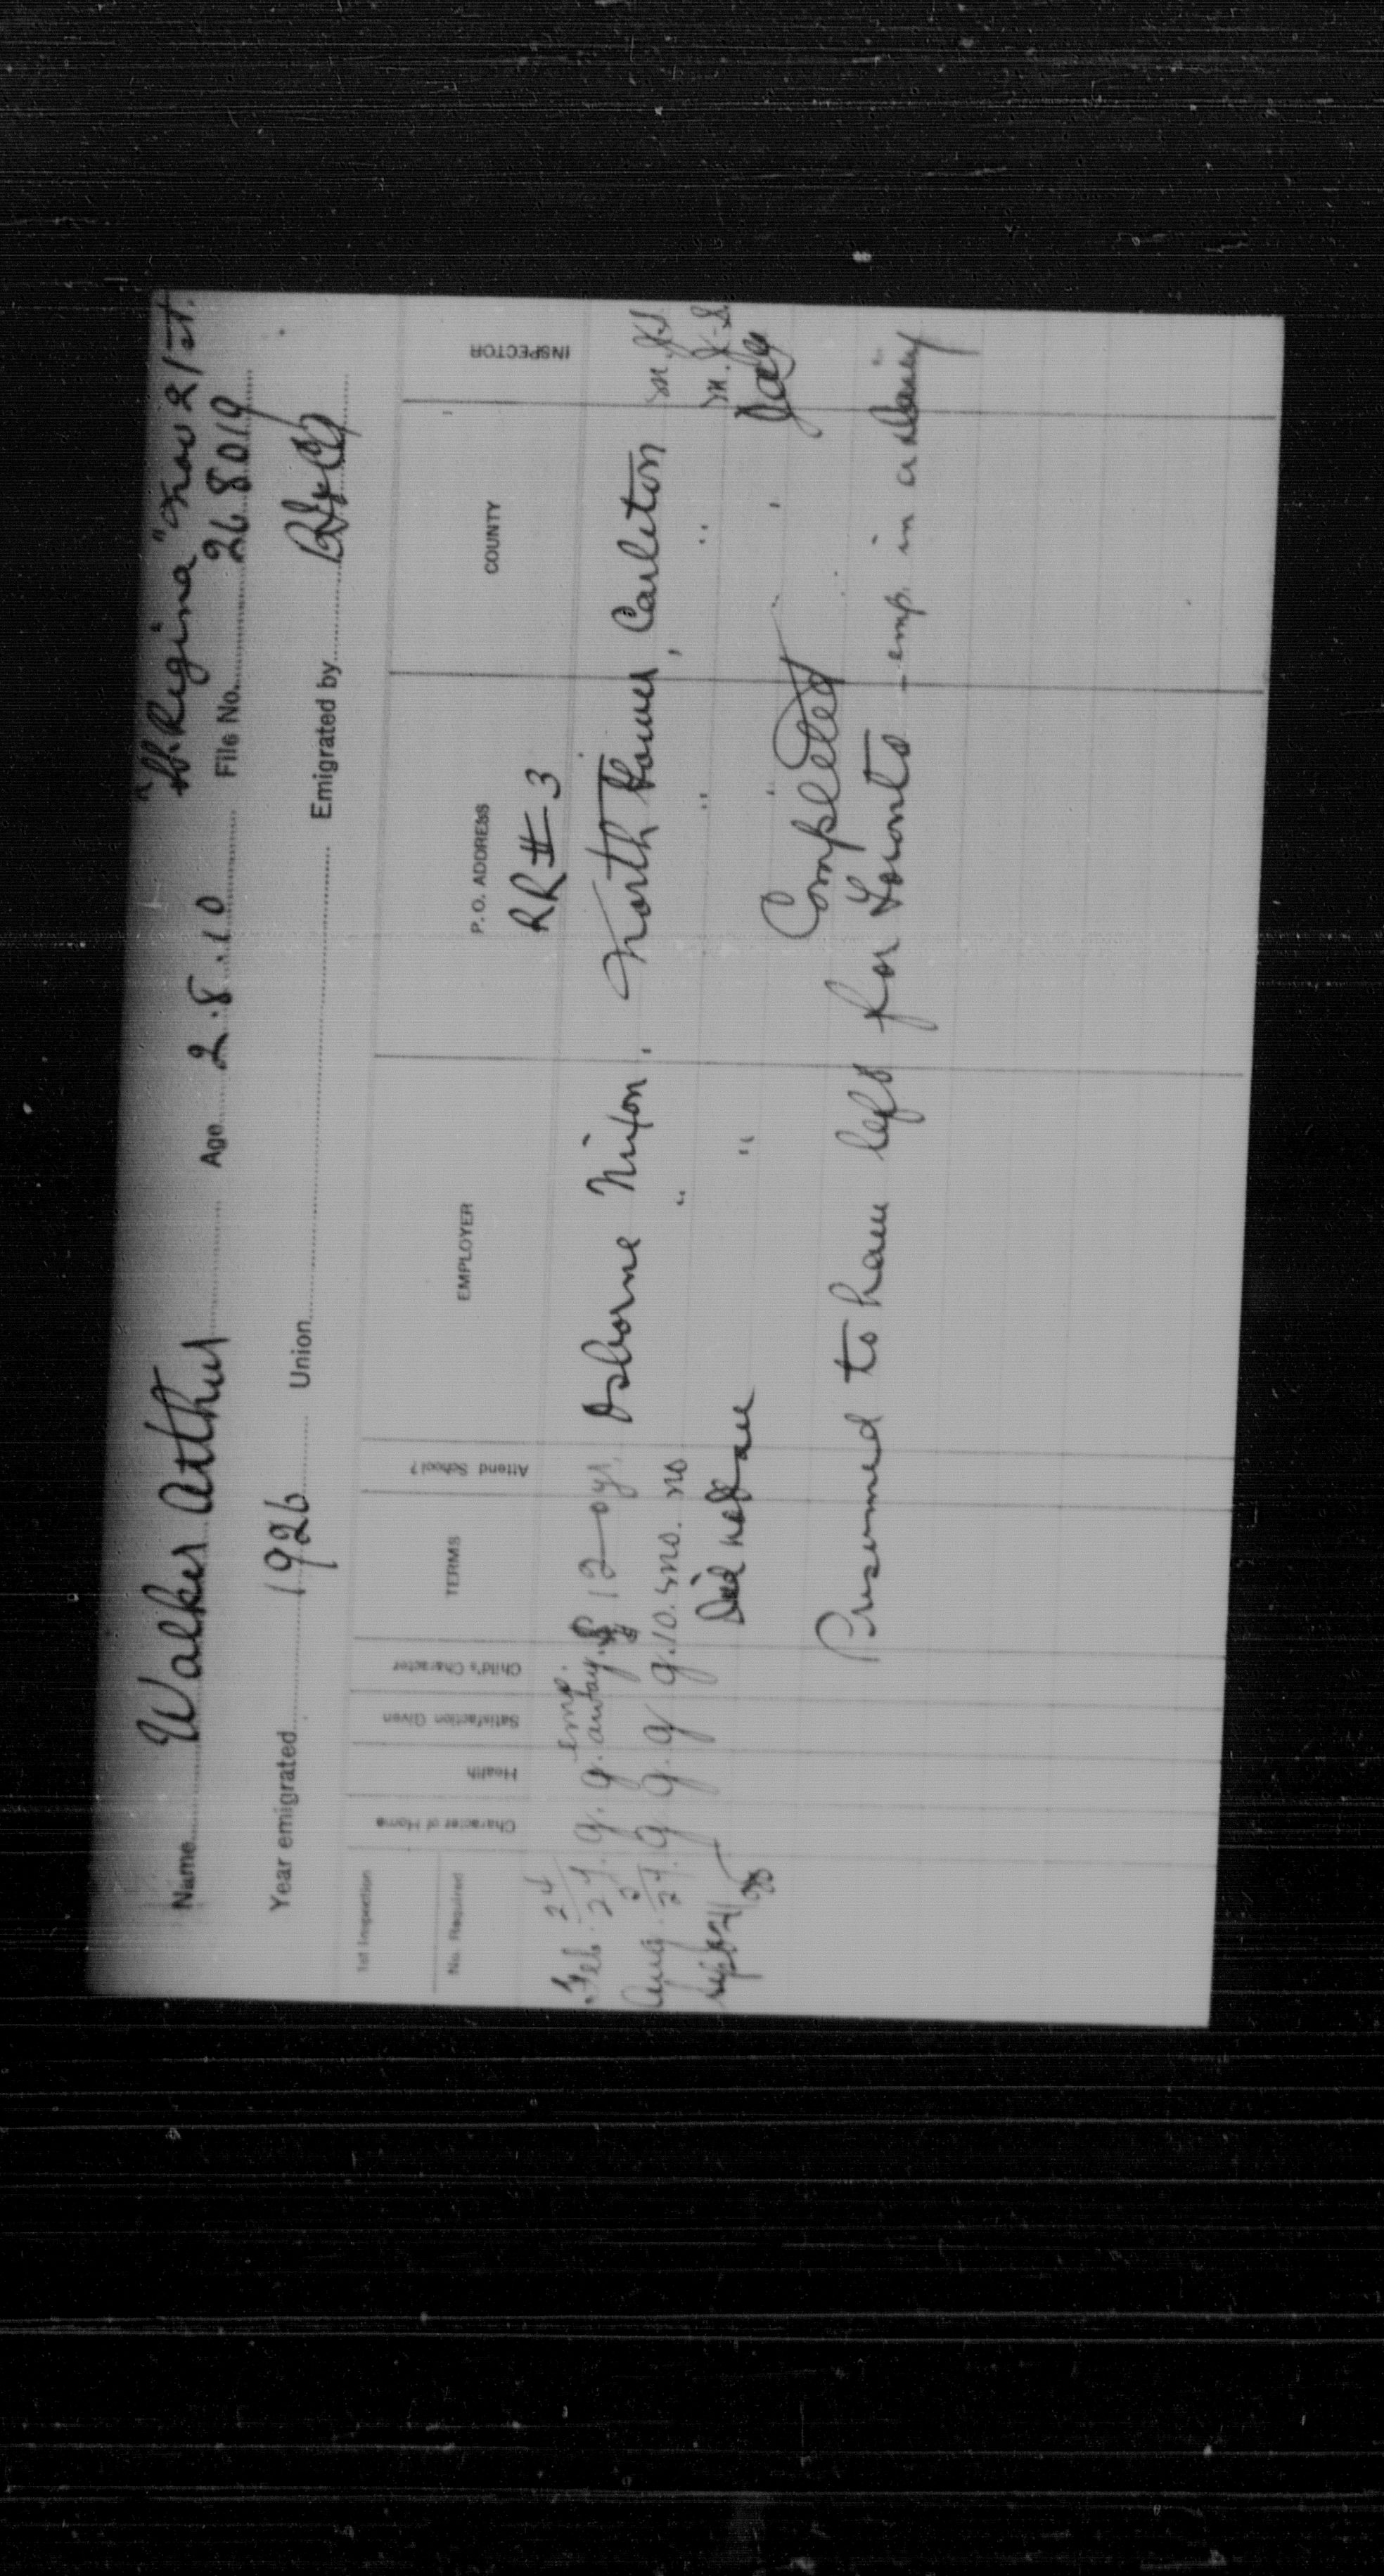 "SS. Regina" Nov 21st.
Name Walker Arthur Age 2.8.10 File No. 268019
Year emigrated 1926 Union Emigrated by
1st Inspection
No. Required
Character of Home
Health
Satisfaction Given
Child's Character
TERMS
Attend School?
EMPLOYER
P. O. ADDRESS
COUNTY
INSPECTOR
RR # 3
Feb. 24/27. g. g. emp. away. 12 - 0 yr. Osborne Nixon. North Gower, Carleton
Aug. 27. g g. g g. 10. mo. no " " "
Did not see " " "
Completed
Presumed to have left for Toronto - emp. in a dairy